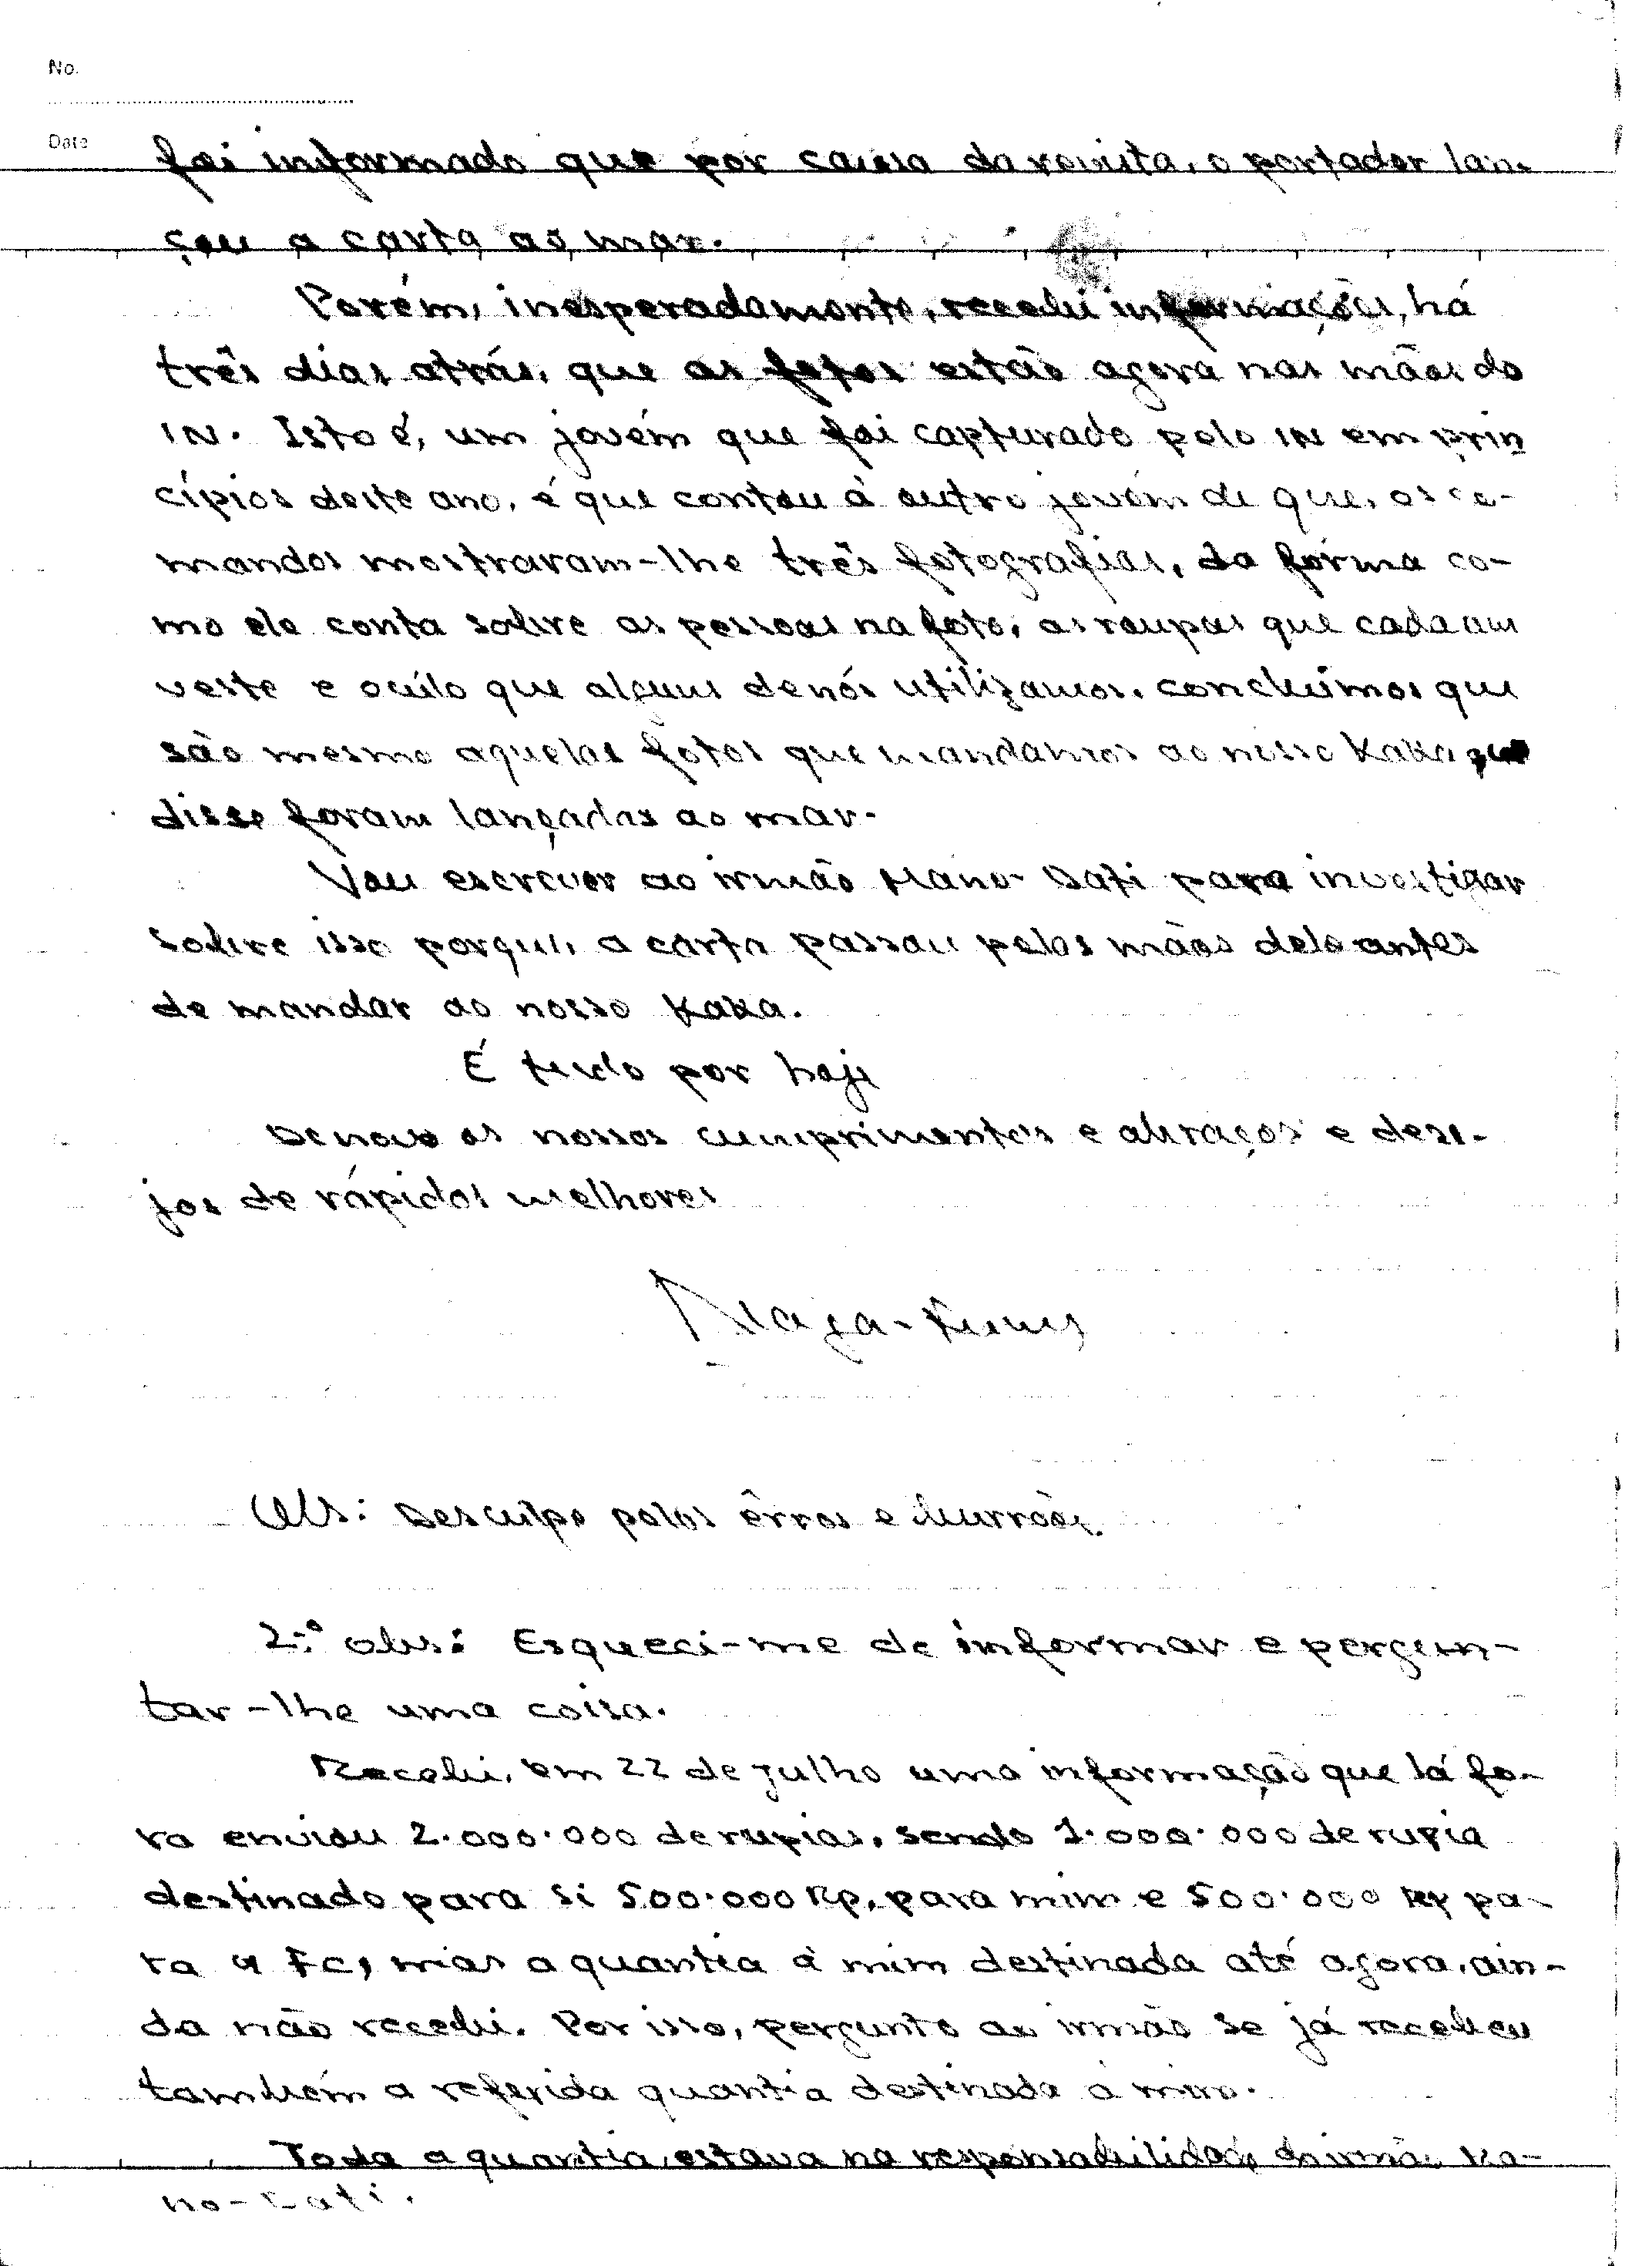 No.
Date
foi informado que por causa da revista, o portador lan-
çou a carta ao mar.
Porém, inesperadamente, recebi informações, há
três dias atrás, que as fotos estão agora nas mãos do
IN. Isto é, um jovém que foi capturado pelo IN em prin
cípios deste ano, é que contou à outro jovém de que, os co-
mandos mostraram-lhe três fotografias, da forma co-
mo ele conta sobre as pessoas na foto, as roupas que cada um
veste e ocúlo que alguns de nós utilizamos, concluímos que
são mesmo aquelas fotos que mandamos ao nosso Kaka que
disse foram lançadas ao mar.
Vou escrever ao irmão Mano-Sati para investigar
sobre isso porque, a carta passou pelas mãos dele antes
de mandar ao nosso Kaka.
É tudo por hoje
De novo os nossos cumprimentos e abraços e dese-
jos de rápidos melhores
Obs: Desculpe pelos êrros e burrões.
2.º obs: Esqueci-me de informar e pergun-
tar-lhe uma coisa.
Recebi, em 22 de julho uma informação que lá fo-
ra enviou 2.000.000 de rupias, sendo 1.000.000 de rupia
destinado para si 500.000 Rp, para mim e 500.000 Rp pa-
ra a FC, mas a quantia à mim destinada até agora, ain-
da não recebi. Por isso, pergunto ao irmão se já recebeu
também a referida quantia destinada à mim.
Toda a quantia estava na responsabilidade do irmão Ma-
no-Sati.